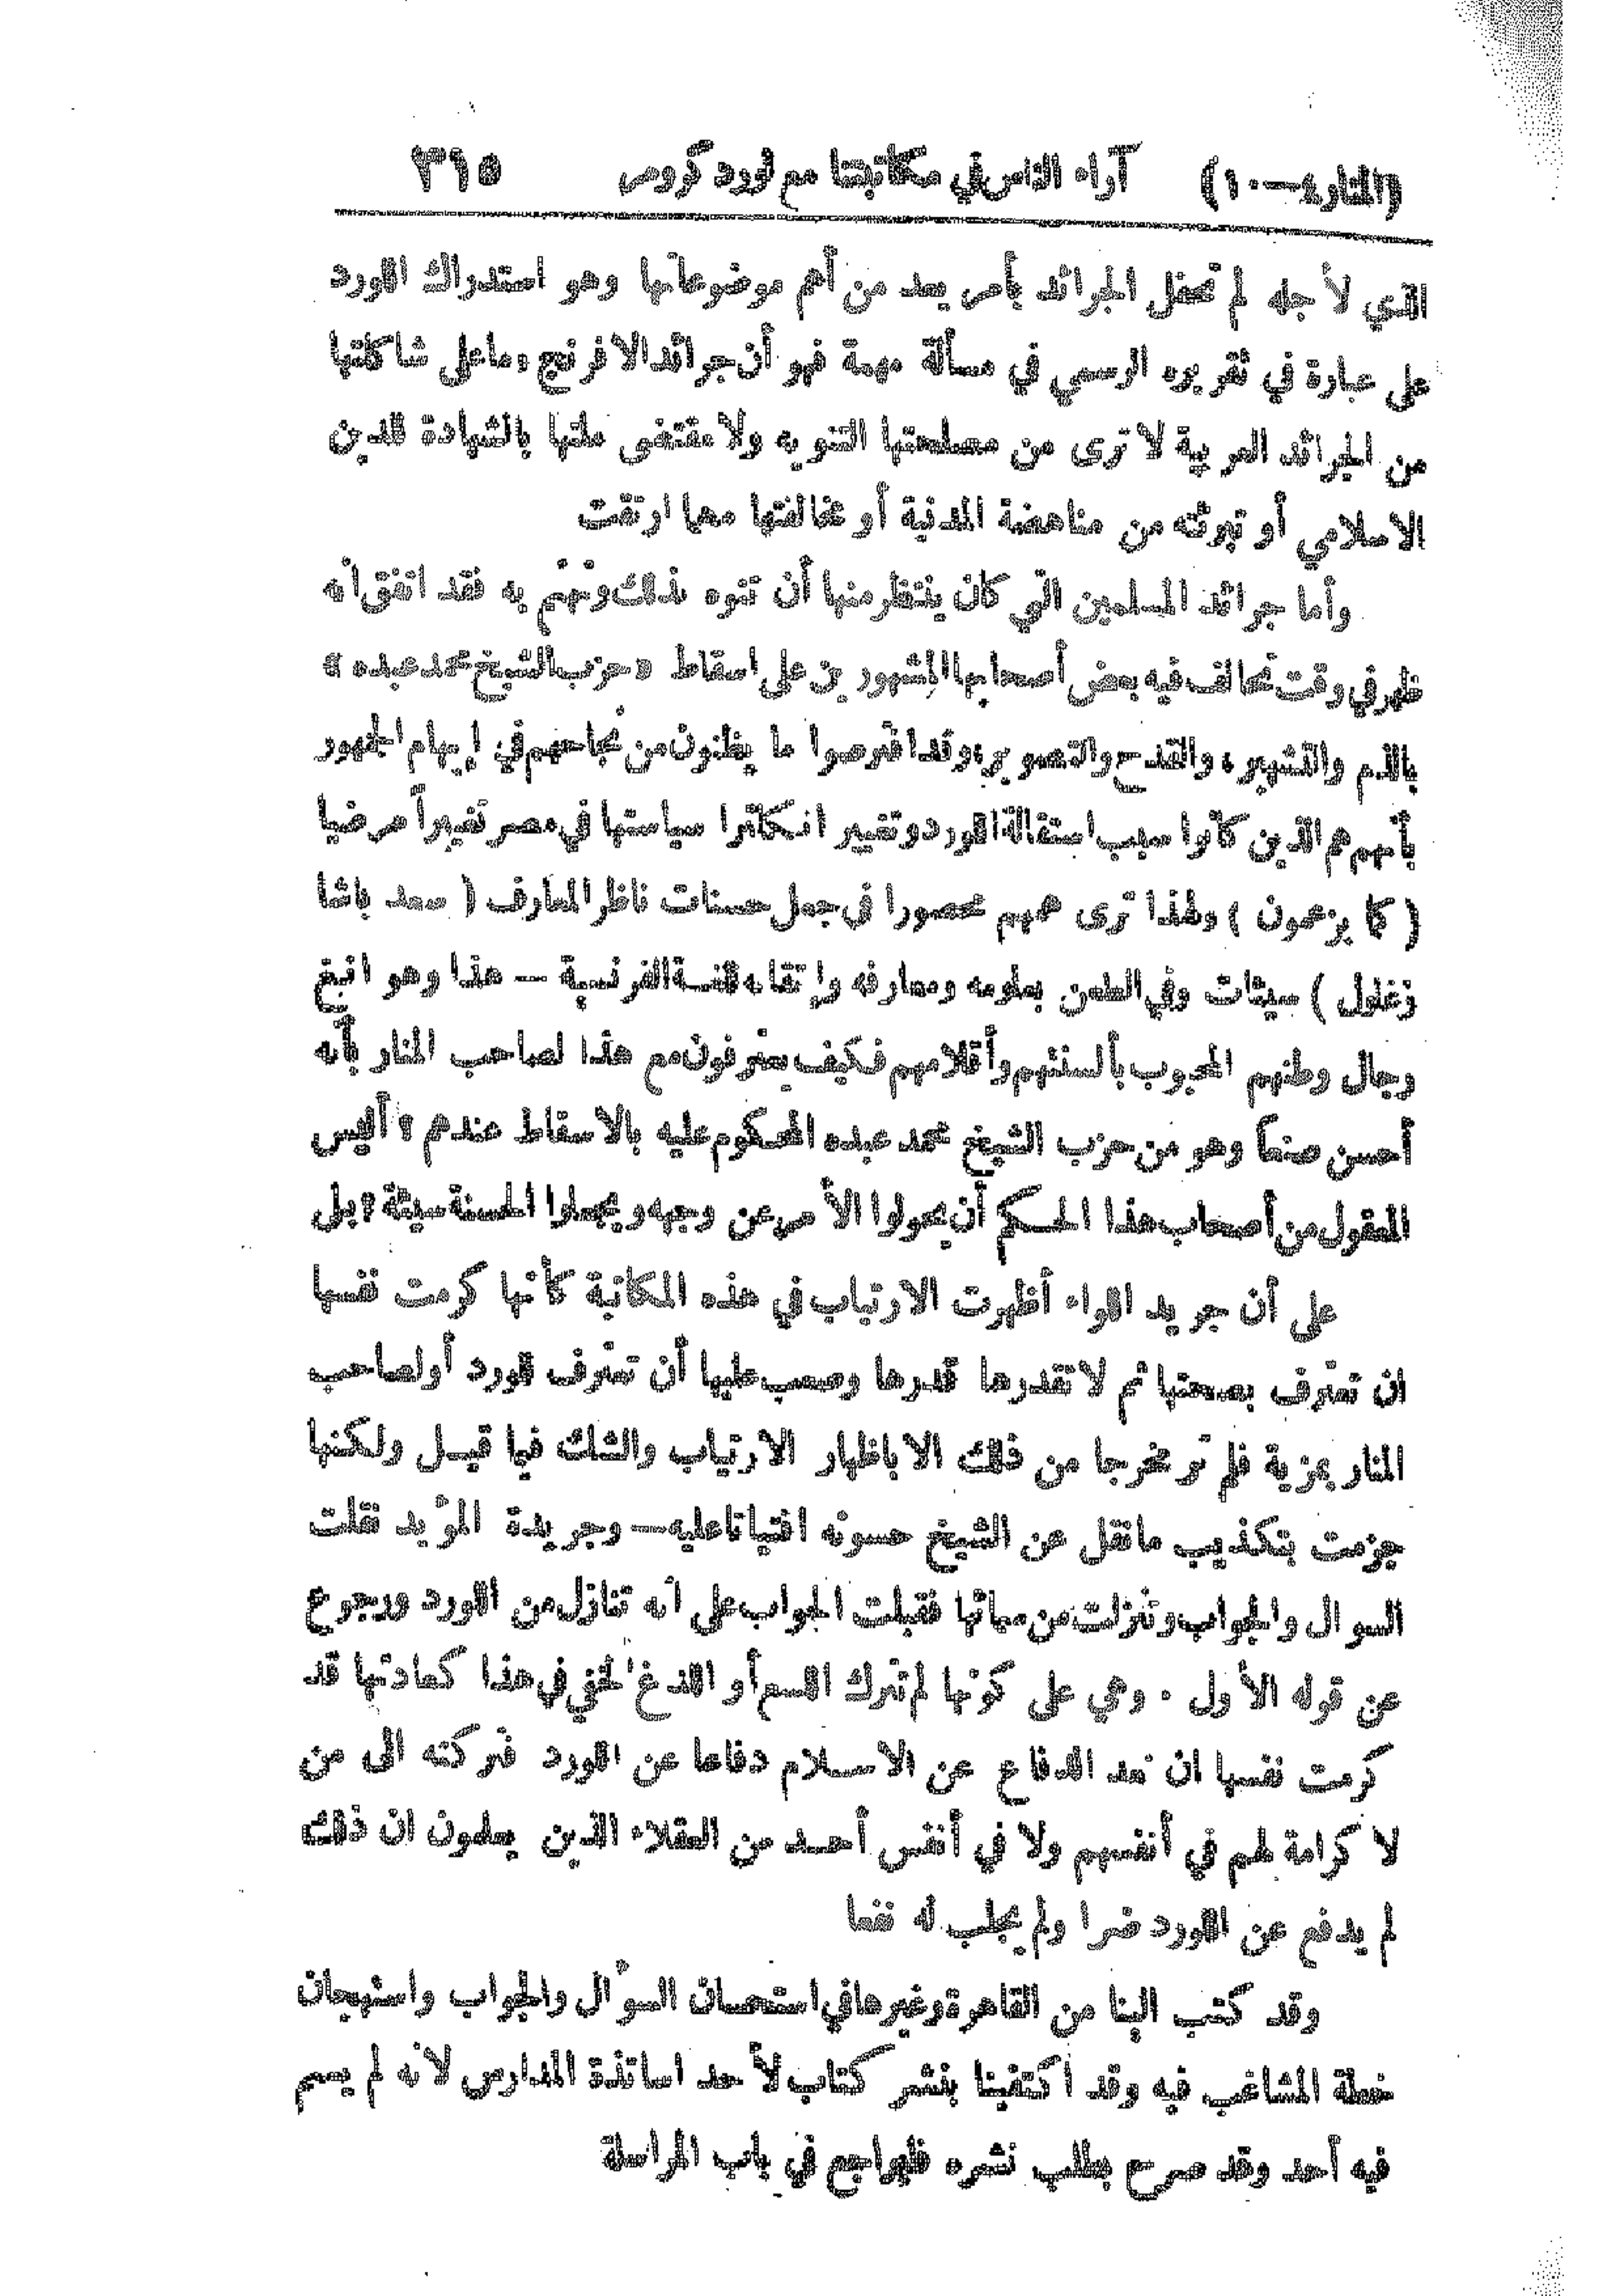 (المنار٤—١٠) آراء الناس في مكاتبتنا مع لورد كرومر ٣١٥
الذي لأجله لم تحفل الجرائد بأمر يعد من أهم موضوعاتها وهو استدراك اللورد
على عبارة في تقريره الرسمي في مسألة مهمة فهو أن جرائد الافرنج وما على شاكلتها
من الجرائد العربية لا ترى من مصلحتها التنويه ولا مقتضى ملتها بالشهادة للدين
الاسلامي أو تبرئته من مناهضة المدنية أو مخالفتها مهما ارتقت
وأما جرائد المسلمين التي كان ينتظر منها أن تنوه بذلك وتهتم به فقد اتفق أنه
ظهر في وقت تحالف فيه بعض أصحابها المشهورين على اسقاط «حزب الشيخ محمد عبده»
بالذم والتشهير، والقدح والتصوير، وقد افترصوا ما يظنون من نجاحهم في إيهام الجمهور
بأنهم هم الذين كانوا سبب استقالة اللورد وتغيير انكلترا سياستها في مصر تغييراً مرضيا
( كما يزعمون ) ولهذا ترى همهم محصورا في جعل حسنات ناظر المعارف ( سعد باشا
زغلول ) سيئات وفي الطعن بعلومه ومعارفه وإتقانه للغة الفرنسية — هذا وهو انبغ
رجال وطنهم المحبوب بألسنتهم وأقلامهم فكيف يعترفون مع هذا لصاحب المنار بأنه
أحسن صنعاً وهو من حزب الشيخ محمد عبده المحكوم عليه بالاسقاط عندهم؟ أليس
المعقول من أصحاب هذا الحكم أن يحولوا الأمر عن وجهه ويجعلوا الحسنة سيئة؟ بلى
على أن جريد اللواء أظهرت الارتياب في هذه المكاتبة كأنها كرمت نفسها
ان تعترف بصحتها ثم لا تقدرها قدرها وصعب عليها أن تعترف للورد أو لصاحب
المنار بمزية فلم تر مخرجا من ذلك الا باظهار الارتياب والشك فيما قيل ولكنها
جزمت بتكذيب ما نقل عن الشيخ حسونه افتياتا عليه — وجريدة المؤيد نقلت
السوال والجواب ونزلت من سمائها فقبلت الجواب على أنه تنازل من اللورد ورجوع
عن قوله الأول . وهي على كونها لم تترك اللسع أو اللدغ الخفي في هذا كعادتها قد
كرمت نفسها ان تعد الدفاع عن الاسلام دفاعا عن اللورد فتركته الى من
لا كرامة لهم في أنفسهم ولا في أنفس أحد من العقلاء الذين يعلمون ان ذلك
لم يدفع عن اللورد ضرا ولم يجلب له نفعا
وقد كتب الينا من القاهرة وغيرها في استحسان السؤال والجواب واستهجان
خطة المشاغب فيه وقد اكتفينا بنشر كتاب لأحد اساتذة المدارس لانه لم يسم
فيه أحد وقد صرح بطلب نشره فليراجع في باب المراسلة